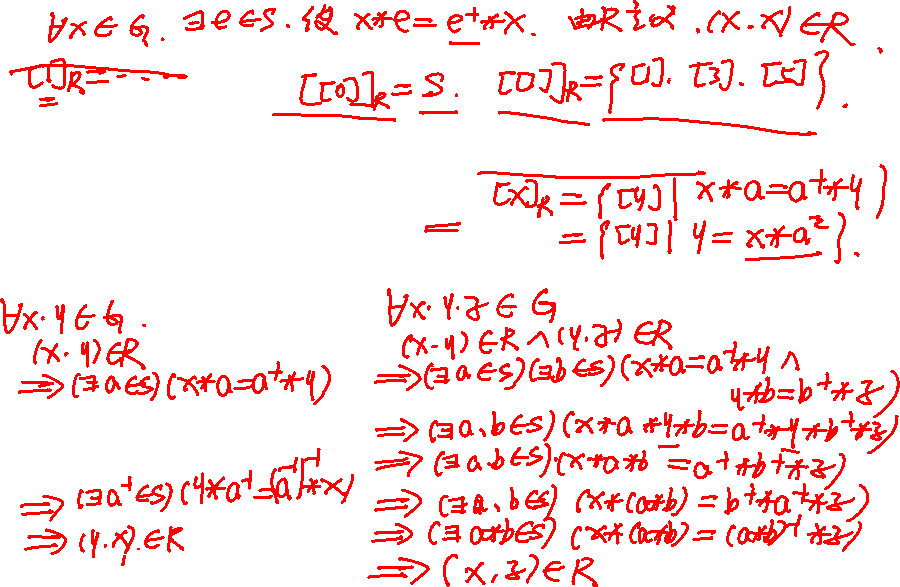 ∀x∈G. ∃e∈S. 使 x*e=e⁻¹*x. 由R定义. (x.x)∈R.
[[0]]_R=S. [[1]]_R={[1]. [3]. [5]}.
[x]_R={[y]| x*a=a⁻¹*y}
={[y]| y=x*a²}.
∀x.y∈G.
(x.y)∈R
⇒(∃a∈S)(x*a=a⁻¹*y)
⇒(∃a⁻¹∈S)(y*a⁻¹=(a⁻¹)⁻¹*x)
⇒(y.x)∈R
∀x.y.z∈G
(x.y)∈R∧(y.z)∈R
⇒(∃a∈S)(∃b∈S)(x*a=a⁻¹*y∧
y*b=b⁻¹*z)
⇒(∃a、b∈S)(x*a*y*b=a⁻¹*y*b⁻¹*z)
⇒(∃a.b∈S)(x*a*b=a⁻¹*b⁻¹*z)
⇒(∃a、b∈S)(x*(a*b)=b⁻¹*a⁻¹*z)
⇒(∃a*b∈S)(x*(a*b)=(a*b)⁻¹*z)
⇒(x,z)∈R